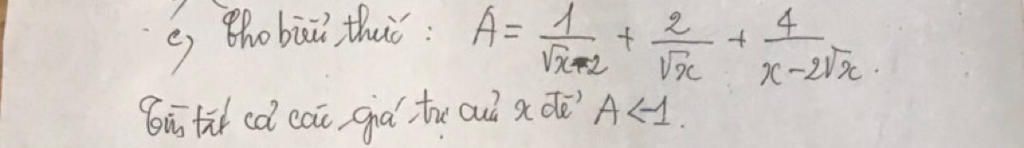 c, Cho biểu thức : A = 1/(√x-2) + 2/√x + 4/(x-2√x).
Tìm tất cả các giá trị của x để A <-1.